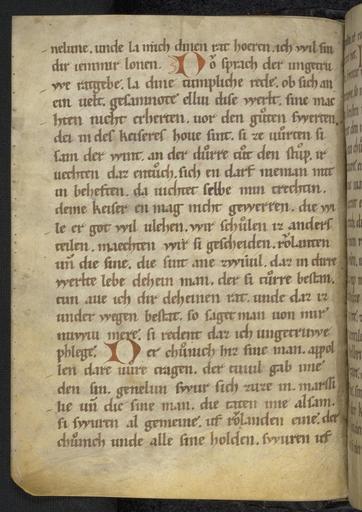 nelune. unde la mich dinen rat hoeren. ich wil sin
dir iemmir lonen. Do sprach der ungetru
we ratgebe. La dine tumpliche rede. ob sich an
ein uelt. gesamnote elliu dise werlt. sine mac
hten nicht erherten. uor den gůten swerten.
dei in des keiseres houe sint. si ze uůrten si
sam der wint. an der důrre tůt den stůp. ir
uechten daz entůch. sich en darf nieman mit
in beheften. da uichtet selbe min trechtin.
deme keiser en mag nicht gewerren. die wi
le er got wil ulehen. wir schůlen iz anders
teilen. maechten wir si gescheiden. růlanten
uñ die sine. die sint ane zwiuil. daz in dirre
werlte lebe dehein man. der si tůrre bestan.
tun aue ich dir deheinen rat. unde daz iz
under wegen bestat. so saget man uon mir
niuwiu mere. si redent daz ich ungetriwe
phlege. Der chůnich hiz sine man. appol
len dare uure tragen. der tiuuil gab ime
den sin. genelun swur sich zuze in. marssi
lie uñ die sine man. die taten ime alsam.
si swuren al gemeine. uf růlanden eine. der
chůnich unde alle sine holden. swuren uf